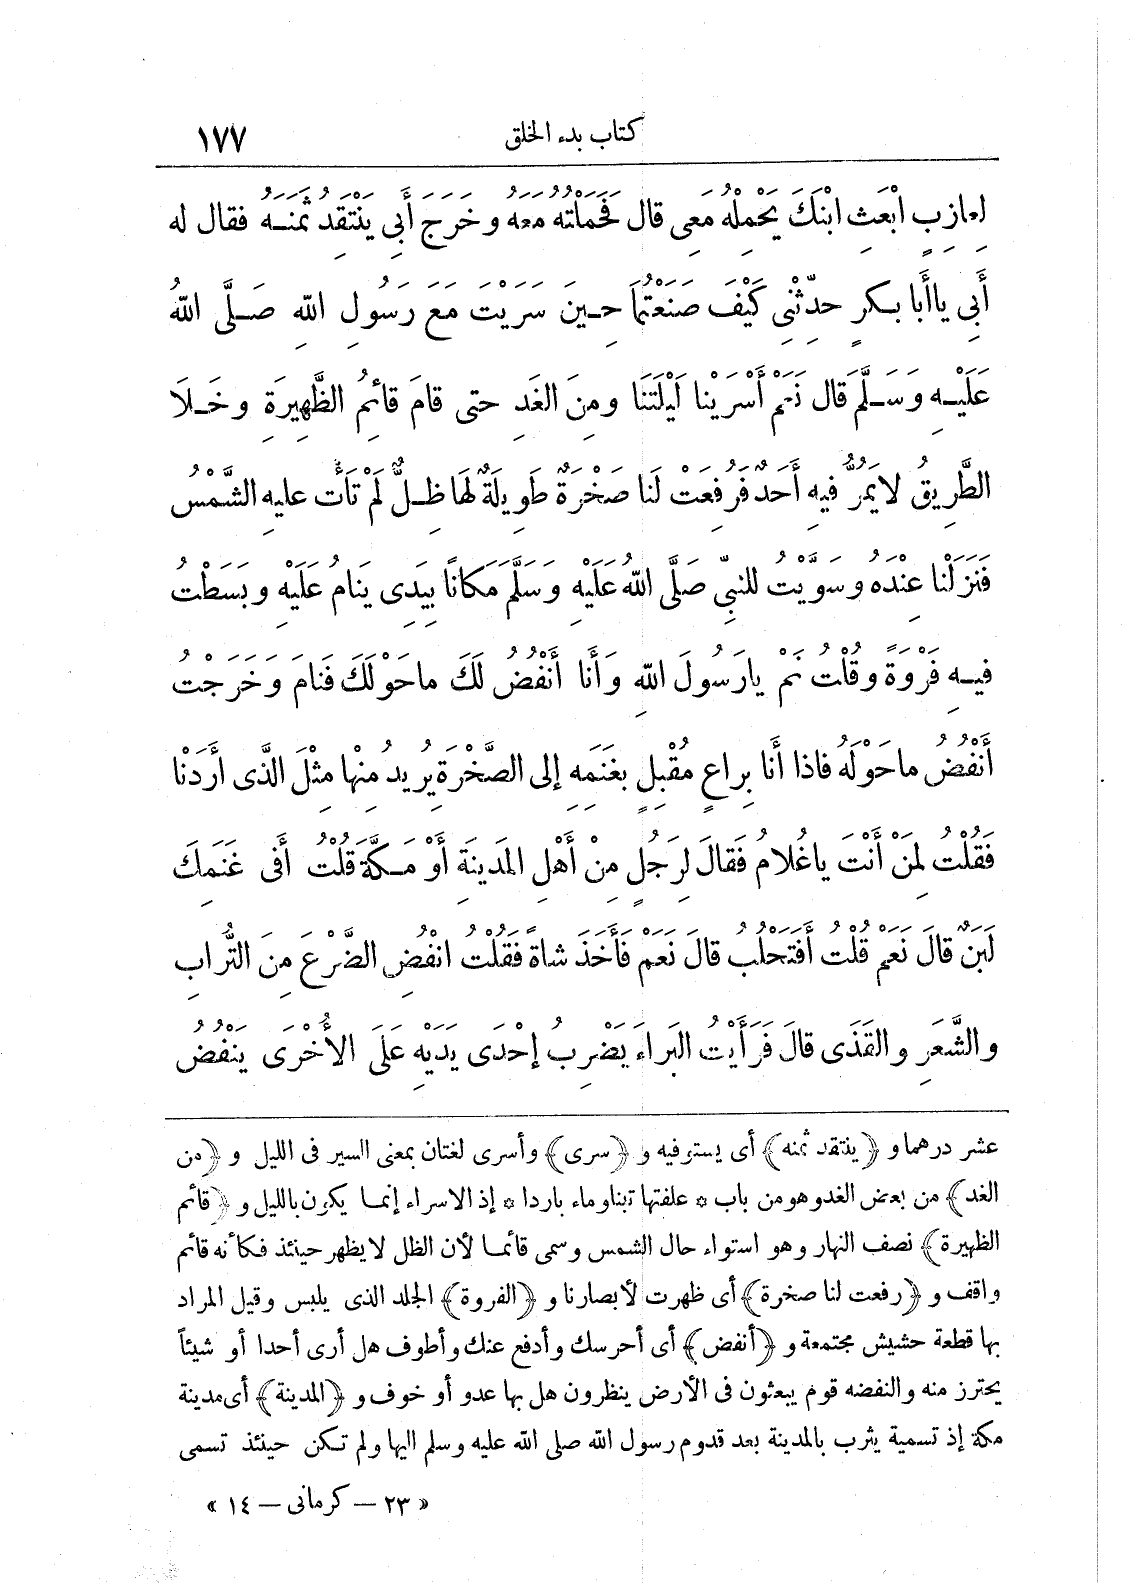 كتاب بدء الخلق ١٧٧
لعازِبٍ ابْعَثِ ابْنَكَ يَحْمِلْهُ مَعِي قال فَحَمَلْتُهُ مَعَهُ وَخَرَجَ أَبِي يَنْتَقِدُ ثَمَنَـهُ فقال له
أَبِي ياأَبا بـكرٍ حدِّثْنِي كَيْفَ صَنَعْتُمَا حِـينَ سَرَيْتَ مَعَ رَسُولِ اللهِ صَـلَّى اللهُ
عَلَيْـهِ وَسَـلَّمَ قال نَعَمْ أَسْرَيْنا لَيْلَتَنَا ومِنَ الغَدِ حتى قامَ قائِمُ الظَّهِيرَةِ وخَـلَا
الطَّرِيقُ لايَمُرُّ فيهِ أَحَدٌ فَرُفِعَتْ لَنا صَخْرَةٌ طَوِيلَةٌ لهَا ظِـلٌّ لَمْ تَأْتِ عليهِ الشَّمْسُ
فَنَزَلْنا عِنْدَهُ وسَوَّيْتُ للنبيِّ صَلَّى اللهُ عَلَيْهِ وَسَلَّمَ مَكانًا بِيَدِى يَنامُ عَلَيْهِ وبَسَطْتُ
فيـهِ فَرْوَةً وقُلْتُ نَمْ يارَسُولَ اللهِ وَأَنا أَنْفُضُ لَكَ ماحَوْلَكَ فَنامَ وَخَرَجْتُ
أَنْفُضُ ماحَوْلَهُ فاذا أَنا بِراعٍ مُقْبِلٍ بِغَنَمِهِ إلى الصَّخْرَةِ يُرِيدُ مِنْها مِثْلَ الذَّى أَرَدْنا
فَقُلْتُ لِمَنْ أَنْتَ ياغُلامُ فَقالَ لِرَجُلٍ مِنْ أَهْلِ المَدِينَةِ أَوْ مَـكَّةَ قُلْتُ أَفِى غَنَمِكَ
لَبَنٌ قالَ نَعَمْ قُلْتُ أَفَتَحْلُبُ قالَ نَعَمْ فَأَخَذَ شاةً فَقُلْتُ انْفُضِ الضَّرْعَ مِنَ التُّرابِ
والشَّعَرِ والقَذَى قالَ فَرَأَيْتُ البَراءَ يَضْرِبُ إحْدَى يَدَيْهِ عَلَى الأُخْرَى يَنْفُضُ
عشر درهما و ﴿ينتقد ثمنه﴾ أى يستوفيه و ﴿سرى﴾ وأسرى لغتان بمعنى السير فى الليل و ﴿من
الغد﴾ من بعض الغد وهو من باب * علفتها تبنا وماء باردا * إذ الاسراء إنمـا يكون بالليل و ﴿قائم
الظهيرة﴾ نصف النهار وهو استواء حال الشمس وسمى قائمـا لأن الظل لا يظهر حينئذ فـكأنه قائم
واقف و ﴿رفعت لنا صخرة﴾ أى ظهرت لأبصارنا و ﴿الفروة﴾ الجلد الذى يلبس وقيل المراد
بها قطعة حشيش مجتمعة و ﴿أنفض﴾ أى أحرسك وأدفع عنك وأطوف هل أرى أحدا أو شيئاً
يحترز منه والنفضه قوم يبعثون فى الأرض ينظرون هل بها عدو أو خوف و ﴿المدينة﴾ أى مدينة
مكة إذ تسمية يثرب بالمدينة بعد قدوم رسول الله صلى الله عليه وسلم اليها ولم تـكن حينئذ تسمى
« ٢٣ — كرمانى — ١٤ »